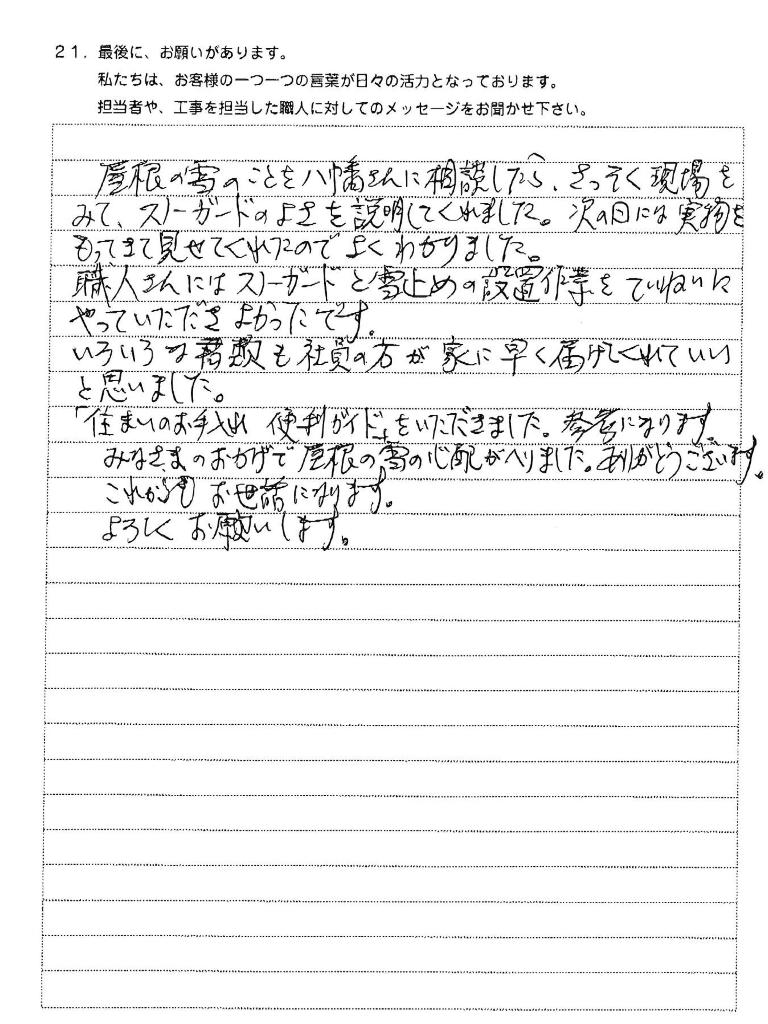 21．最後に、お願いがあります。
私たちは、お客様の一つ一つの言葉が日々の活力となっております。
担当者や、工事を担当した職人に対してのメッセージをお聞かせ下さい。
屋根の雪のことを八幡さんに相談したら、さっそく現場を
みて、スノーガードのよさを説明してくれました。次の日には実物を
もってきて見せてくれたのでよくわかりました。
職人さんにはスノーガードと雪止めの設置作業をていねいに
やっていただきよかったです。
いろいろな書類も社員の方が家に早く届けてくれていい
と思いました。
「住まいのお手入れ 便利ガイド」をいただきました。参考になります
みなさまのおかげで屋根の雪の心配がへりました。ありがとうございます。
これからもお世話になります。
よろしくお願いします。